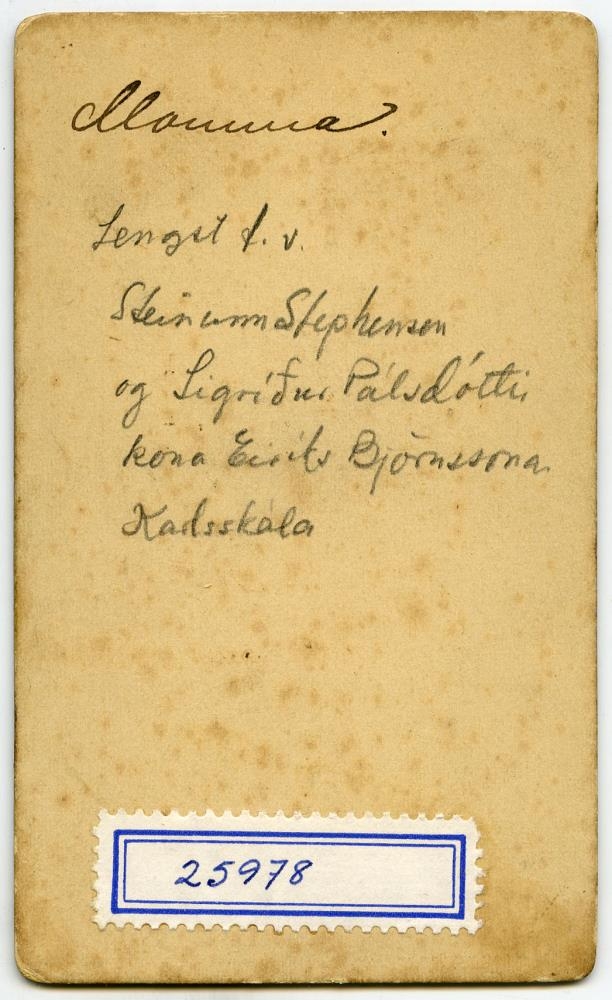 Mamma.
Lengst t. v.
Steinunn Stephensen
og Sigríður Pálsdóttir
kona Eiríks Björnssonar
Karlsskála
25978